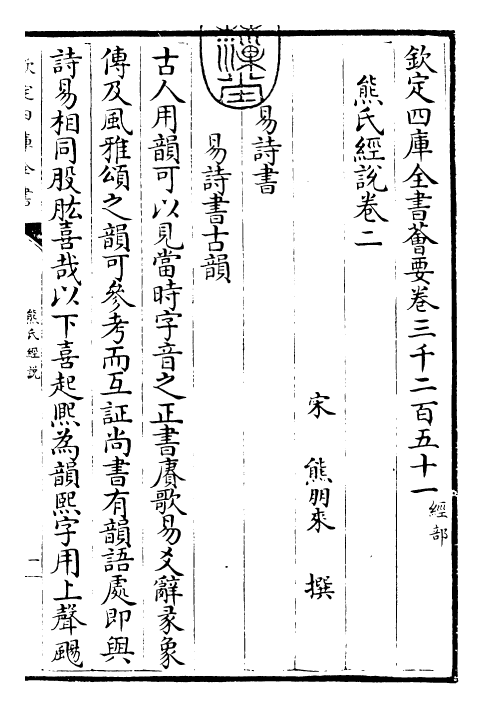 欽定四庫全書薈要卷三千二百五十一 經部
熊氏經說卷二
宋 熊朋來 撰
易詩書
易詩書古韻
古人用韻可以見當時字音之正書賡歌易爻辭彖象
傳及風雅頌之韻可參考而互証尚書有韻語處即與
詩易相同股肱喜哉以下喜起熙為韻熙字用上聲颺
欽定四庫全書
熊氏經說
一